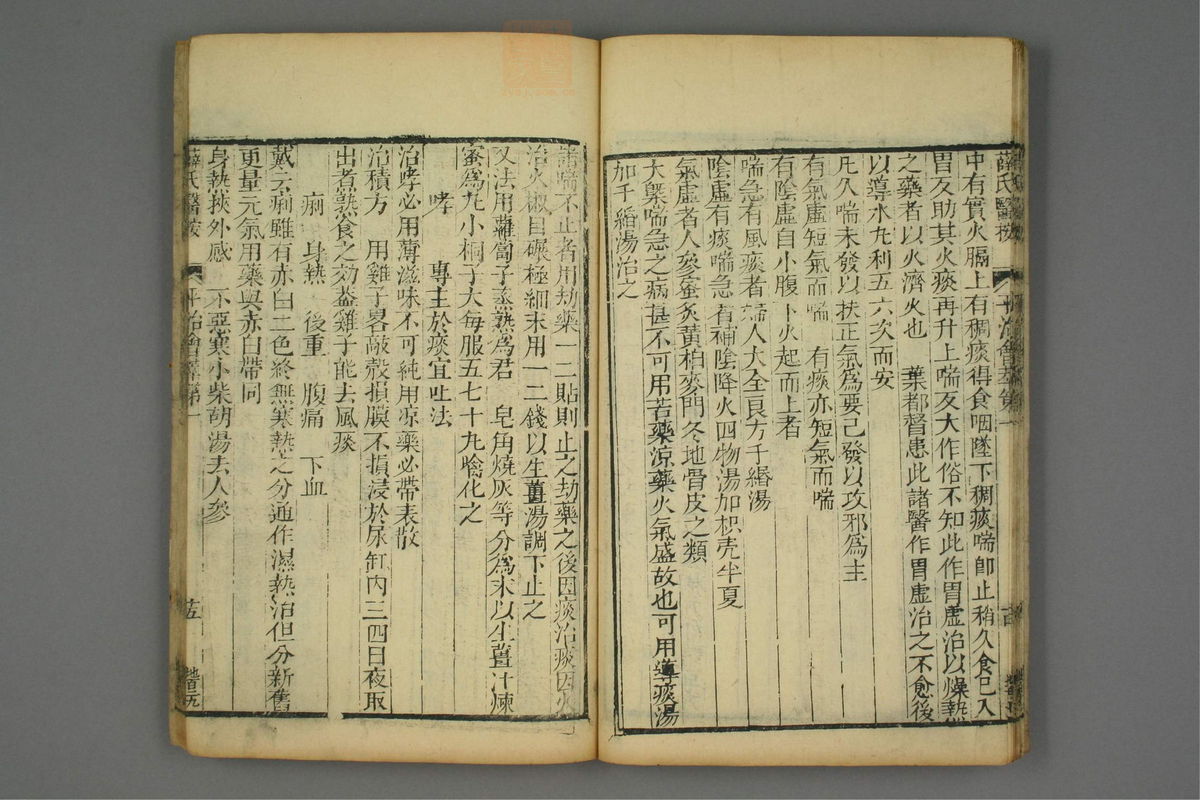 薛氏醫按
中有實火膈上有稠痰得食咽墜下稠痰喘卽止稍久食已入
胃反助其火痰再升上喘反大作俗不知此作胃虛治以燥熱
之藥者以火濟火也　葉都督患此諸醫作胃虛治之不愈後
以導水丸利五六次而安
凡久喘未發以扶正氣爲要已發以攻邪爲主
有氣虛短氣而喘　有痰亦短氣而喘
有陰虛自小腹下火起而上者
喘急有風痰者婦人大全良方千緡湯
陰虛有痰喘急者補陰降火四物湯加枳壳半夏
氣虛者人參蜜炙黃柏麥門冬地骨皮之類
大槩喘急之病甚不可用苦藥涼藥火氣盛故也可用導痰湯
加千緡湯治之
諸喘不止者用劫藥一二貼則止之劫藥之後因痰治痰因火
治火椒目碾極細末用一二錢以生薑湯調下止之
又法用蘿蔔子蒸熟爲君　皂角燒灰等分爲末以生薑汁煉
蜜爲丸小桐子大每服五七十丸噙化之
哮　專主於痰宜吐法
治哮必用薄滋味不可純用凉藥必帶表散
治積方　用雞子畧敲殼損膜不損浸於尿缸內三四日夜取
出煮熟食之効葢雞子能去風痰
痢　身熱　後重　腹痛　下血
戴云痢雖有赤白二色終無寒熱之分通作濕熱治但分新舊
更量元氣用藥與赤白帶同
身熱挾外感　不惡寒小柴胡湯去人參
薛氏醫按　平治會萃第一